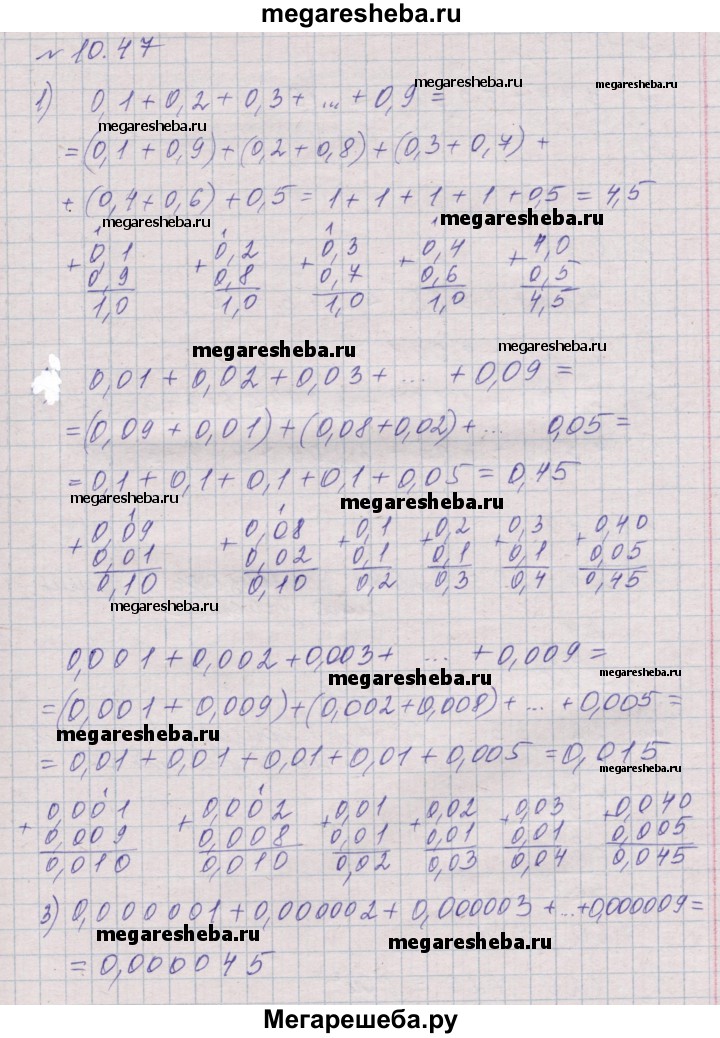 megaresheba.ru
№ 10.47
megaresheba.ru
megaresheba.ru
1) 0,1 + 0,2 + 0,3 + ... + 0,9 =
megaresheba.ru
= (0,1 + 0,9) + (0,2 + 0,8) + (0,3 + 0,7) +
+ (0,4 + 0,6) + 0,5 = 1 + 1 + 1 + 1 + 0,5 = 4,5
megaresheba.ru megaresheba.ru
1 1 1 1
+ 0,1 + 0,2 + 0,3 + 0,4 + 4,0
0,9 0,8 0,7 0,6 0,5
1,0 1,0 1,0 1,0 4,5
megaresheba.ru megaresheba.ru
0,01 + 0,02 + 0,03 + ... + 0,09 =
= (0,09 + 0,01) + (0,08 + 0,02) + ... 0,05 =
= 0,1 + 0,1 + 0,1 + 0,1 + 0,05 = 0,45
megaresheba.ru megaresheba.ru
1 1
+ 0,09 + 0,08 + 0,1 + 0,2 + 0,3 + 0,40
0,01 0,02 0,1 0,1 0,1 0,05
0,10 0,10 0,2 0,3 0,4 0,45
megaresheba.ru
0,001 + 0,002 + 0,003 + ... + 0,009 =
megaresheba.ru megaresheba.ru
= (0,001 + 0,009) + (0,002 + 0,008) + ... + 0,005 =
megaresheba.ru
= 0,01 + 0,01 + 0,01 + 0,01 + 0,005 = 0,015
megaresheba.ru
1 1
+ 0,001 + 0,002 + 0,01 + 0,02 + 0,03 + 0,040
0,009 0,008 0,01 0,01 0,01 0,005
0,010 0,010 0,02 0,03 0,04 0,045
3) 0,000001 + 0,000002 + 0,000003 + ... + 0,000009 =
megaresheba.ru megaresheba.ru
= 0,000045
Мегарешеба.ру